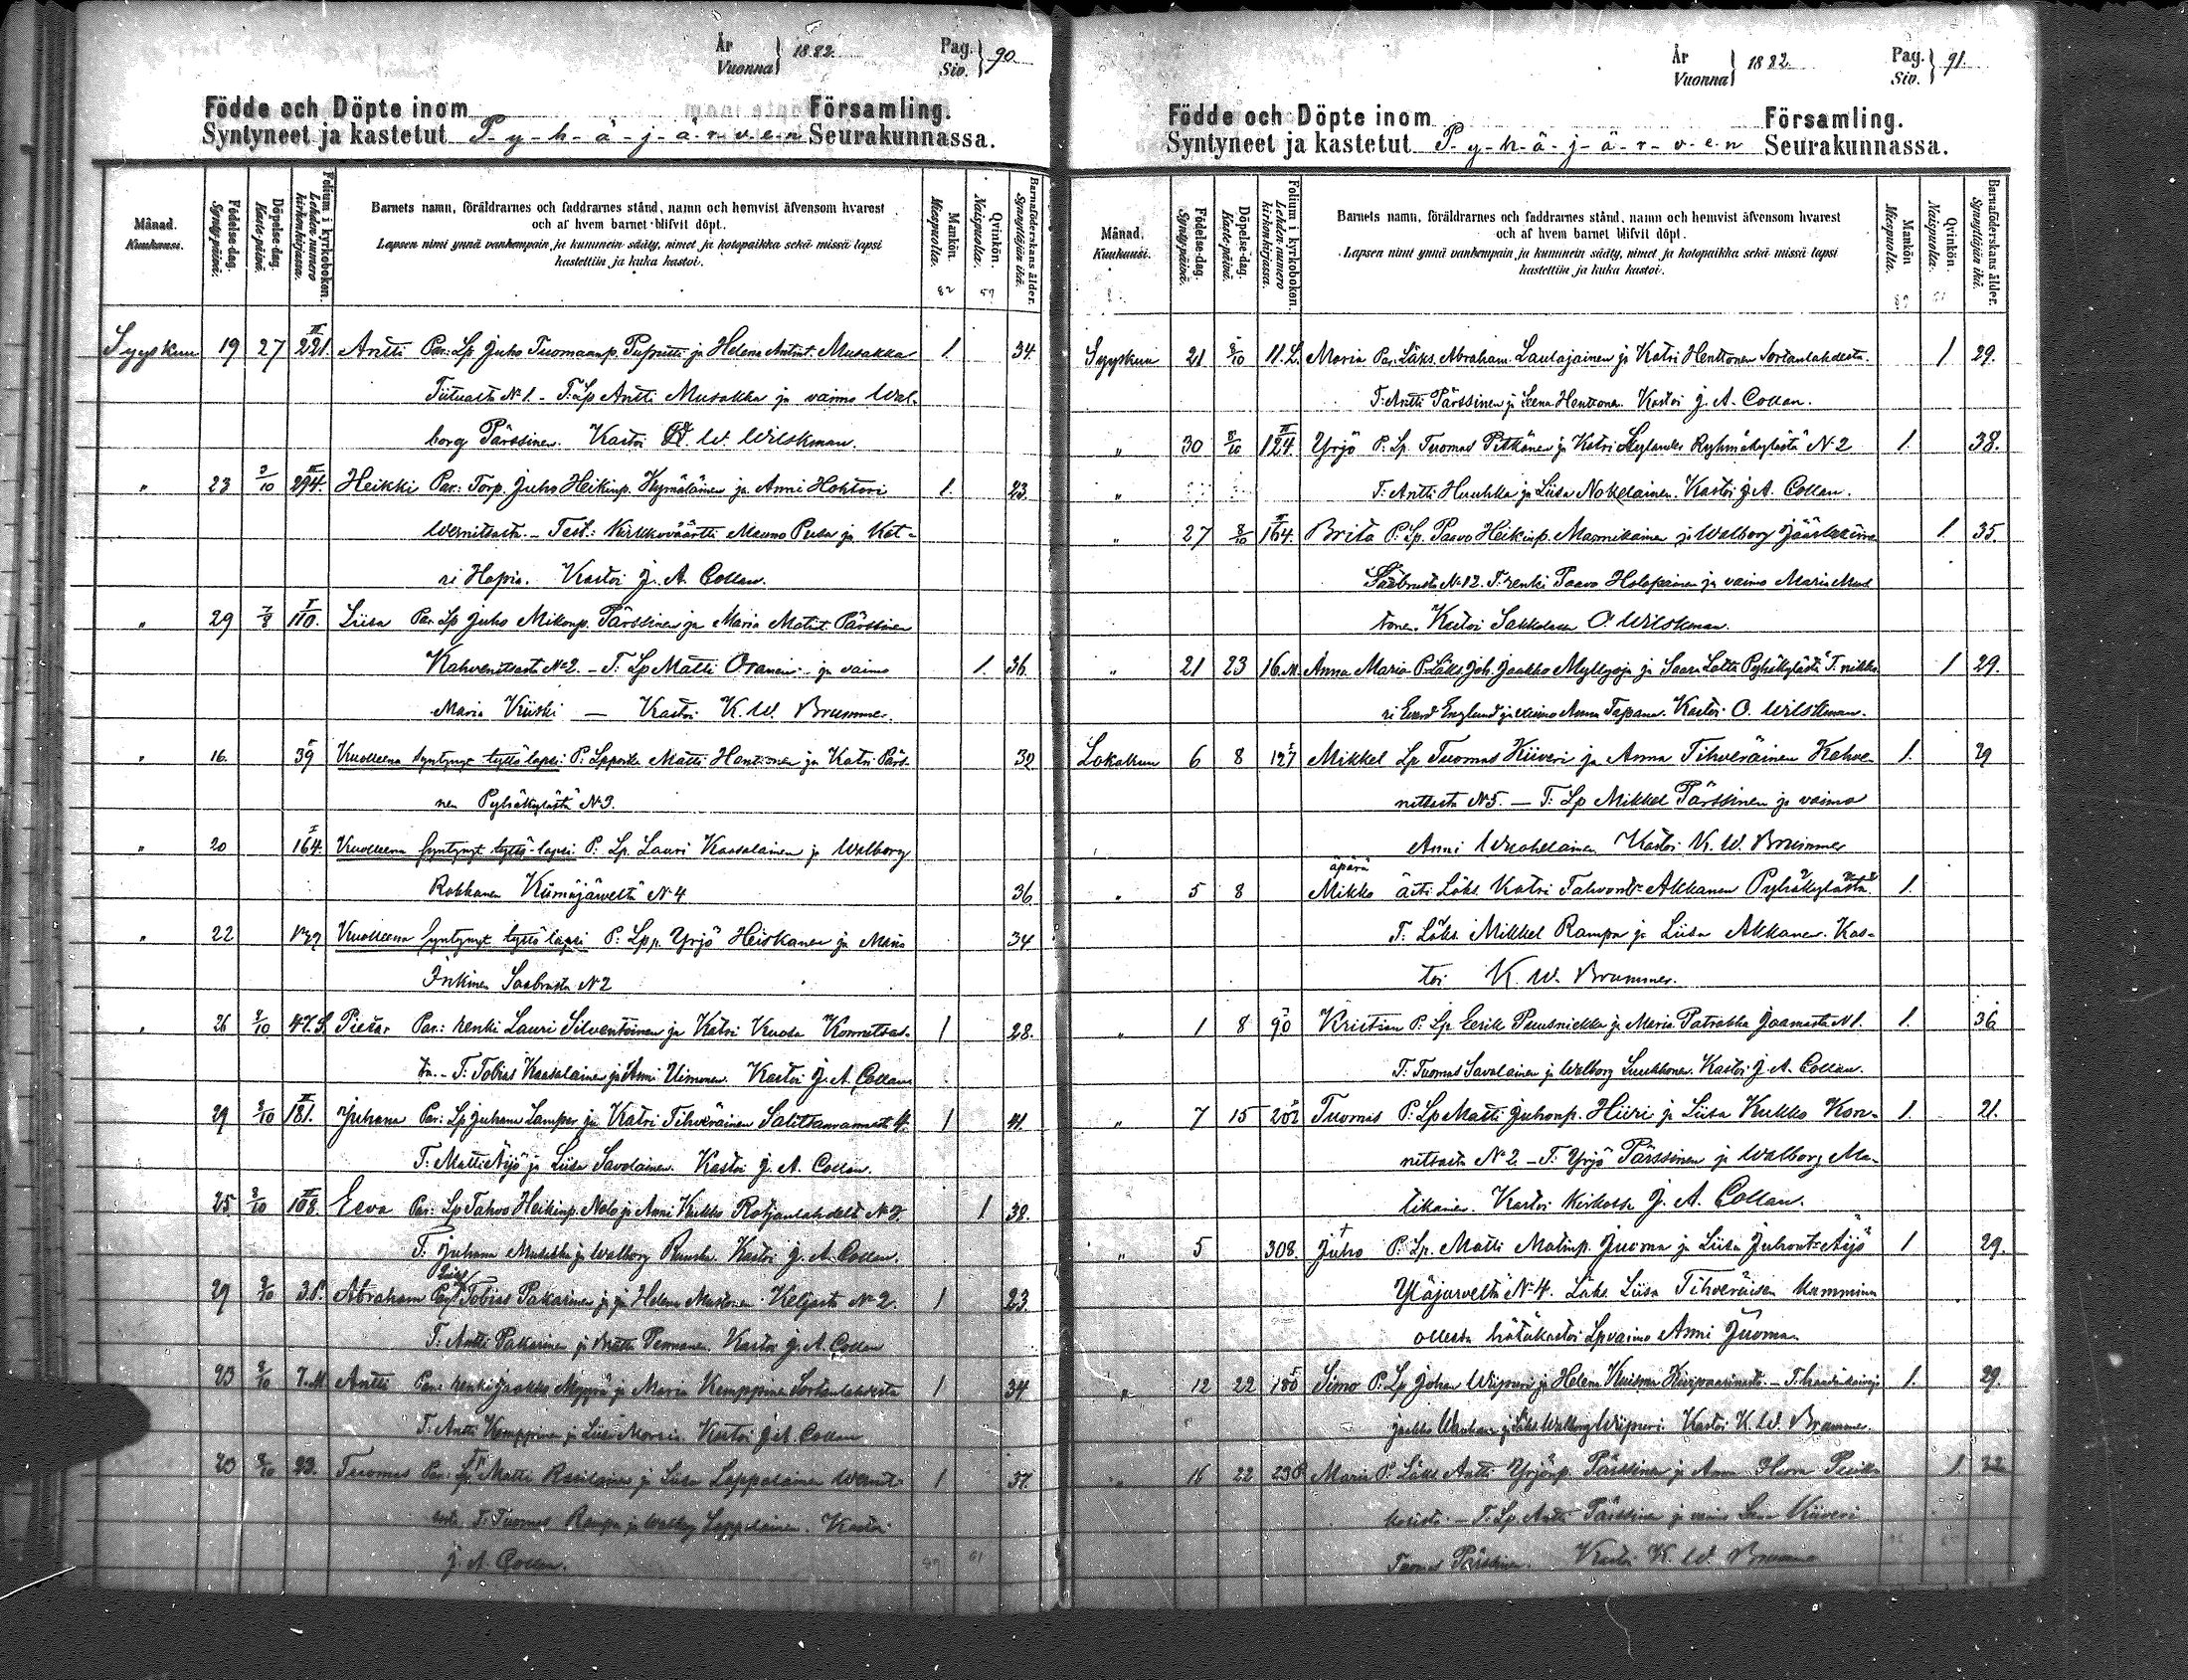 År
Vuonna } 1882.
Pag.
Siv. } 90
Födde och Döpte inom Församling.
Syntyneet ja kastetut P-y-h-ä-j-ä-r-v-e-n Seurakunnassa.
Månad.
Kuukausi.
Födelse-dag.
Synty-päivä.
Döpelse-dag.
Kaste-päivä.
Folium i kyrkoboken.
Lehden-numero kirkonkirjassa.
Barnets namn, föräldrarnes och faddrarnes stånd, namn och hemvist äfvensom hvarest
och af hvem barnet blifvit döpt.
Lapsen nimi ynnä vanhempain ja kummein sääty, nimet ja kotopaikka sekä missä lapsi
kastettiin ja kuka kastoi.
Mankön.
Miespuolta.
Qvinkön.
Naispuolta.
Barnaföderskans ålder.
Synnyttäjän ikä.
82 57
Syyskuu 19 27 II 221. Antti Par: Lp Juho Tuomaanp. ja Helena Antint. Musakka 1. 34.
Tiitualta No 1 - T: Lp Antti Musakka ja vaimo Wal-
borg Pärssinen. Kastoi W. Wilskman.
" 23 2/10 II 294. Heikki Par: Torp. Juho Heikinp. Kymäläinen ja Anni Hohtori 1. 23.
Wernitsasta. - Test: Kirkkoväärtti Mauno Pusa ja Kat-
ri Hapia. Kastoi J. A. Collan.
" 29 I 110. Liisa Par. Lp Juho Mikonp. Pärssinen ja Maria Matint. Pärssinen
Kahvenitsasta No 2. - T: Lp Matti Oranen ja vaimo 1. 36.
Maria Kiiski — Kastoi K. W. Brummer.
" 16. I 39 Kuolleena syntynyt tyttö lapsi P: Matti Hentonen ja Katri Pärs- 32
nen Pyhäkylästä No 3.
" 20 I 164. Kuolleena syntynyt tyttö-lapsi P: Lp. Lauri Kaasalainen ja Walborg
Rokkanen Kiimajärveltä No 4 36.
" 22 Kuolleena syntynyt tyttö lapsi P: Lpp. Yrjö Heiskanen ja Maria 34
Inkinen Saabrusta No 2
" 26 2/10 47.S. Pietar Par: renki Lauri Silventoinen ja Katri Kuosa Konnitsas- 1 28.
ta. - T: Tobias Kaasalainen ja Anni Uimonen. Kastoi J. A. Collan
29 2/10 II 181. Juhana Par: Lp Juhana Lamper ja Katri Tihveräinen 1 41.
T: Matti Äijö ja Liisa Savolainen. Kastoi J. A. Collan.
25. 2/10 II 108. Eeva Par: Lp Tahvo Heikinp. ja Anni Kukko Rotjanlahdelt No 7. 1 38.
T: Juhana Musakka ja Walborg Ruuska. Kastoi J. A. Collan.
29 2/10 3.P. Abraham Tobias Pakarinen ja Helena Mustonen Keljasta No 2. 1 23.
T: Antti Pakarinen ja Pennanen. Kastoi J. A. Collan
23 2/10 7.M. Antti Par: renki Jaakko Myyrä ja Maria Kemppinen Sortanlahdesta 1 34
T: Antti Kemppinen ja Liisa Kastoi J. A. Collan
23 2/10 23. Tuomas Par: Lp. Matti ja Liisa Lappalainen 1 37.
T: Tuomas Rampa ja Walborg Lappalainen. Kastoi
J. A. Collan.
89 61
År
Vuonna } 1882.
Pag.
Siv. } 91.
Födde och Döpte inom Församling.
Syntyneet ja kastetut P-y-h-ä-j-ä-r-v-e-n Seurakunnassa.
Månad.
Kuukausi.
Födelse-dag.
Synty-päivä.
Döpelse-dag.
Kaste-päivä.
Folium i kyrkoboken.
Lehden-numero kirkonkirjassa.
Barnets namn, föräldrarnes och faddrarnes stånd, namn och hemvist äfvensom hvarest
och af hvem barnet blifvit döpt.
Lapsen nimi ynnä vanhempain ja kummein sääty, nimet ja kotopaikka sekä missä lapsi
kastettiin ja kuka kastoi.
Mankön
Miespuolta.
Qvinkön.
Naispuolta.
Barnaföderskans ålder.
Synnyttäjän ikä.
Syyskuu 21 8/10 11.L. Maria Par. Läks. Abraham Laulajainen ja Katri Henttonen Sortanlahdesta. 1 29.
T: Antti Pärssinen ja Leena Henttonen. Kastoi J. A. Collan.
" 30 8/10 II 124. Yrjö P: Lp. Tuomas Pitkänen ja Katri Ryhmäkylästä No 2 1. 38.
" T: Antti Huuhka ja Liisa Nokelainen. Kastoi J. A. Collan.
" 27 8/10 II 164. Brita P: Lp. Paavo Heikinp. Mannikainen ja Walborg Jääskeläinen 1. 35.
Saabrusta No 12. T: renki Paavo Holopainen ja vaimo Maria Mus-
tonen. Kastoi Sakkolassa O. Wilskman.
" 21 23 16.M. Anna Maria P: Läks. Joh. Jaakko Myllyoja ja Saara Lotta Pyhäkylästä T. nikka- 1 29.
ri Evard Englund ja vaimo Anna Tapana. Kastoi O. Wilskman.
Lokakuu 6 8 I 127 Mikkel Lp Tuomas Kiiveri ja Anna Tihveräinen Kahve- 1. 29
nitsasta No 5. — T: Lp Mikkel Pärssinen ja vaimo
Anni Kastoi K. W. Brummer
äpärä
" 5 8 Mikko äiti Läks. Katri Tahvont. Akkanen Pyhäkylästä 1.
T: Läks. Mikkel Rampa ja Liisa Akkanen. Kas-
toi K. W. Brummer.
" 1 8 I 90 Kristian P: Lp Eerik Puusniekka ja Maria Patrakka Jaamasta No 1. 1. 36
T: Tuomas Savolainen ja Walborg Luukkonen. Kastoi J. A. Collan.
" 7 15 I 202 Tuomas P: Lp Matti Juhonp. Hiiri ja Liisa Kukko Kon- 1. 21.
nitsasta No 2. - T: Yrjö Pärssinen ja Walborg Ma-
tikainen. Kastoi kirkossa J. A. Collan.
" 5 308. Juho P: Lp. Matti Matinp. Juoma ja Liisa Juhont. Äijö 1 29.
Yläjärveltä No 4. Läks. Liisa Tihveräisen kummina
ollessa hätäkastoi Lp vaimo Anni Juoma.
" 12 22 I 180 Simo P: Lp Johan Wiipuri ja Helena Kuisma - T: 1. 29.
Jaakko ja Läks. Walborg Wiipuri. Kastoi K. W. Brummer.
" 16 22 23P. Maria P: Läks. Antti Yrjönp. Pärssinen ja Anna 1. 22
- T: Lp. Antti Pärssinen ja vaimo Leena Kiiveri
Tuomas Pärssinen. Kastoi K. W. Brummer